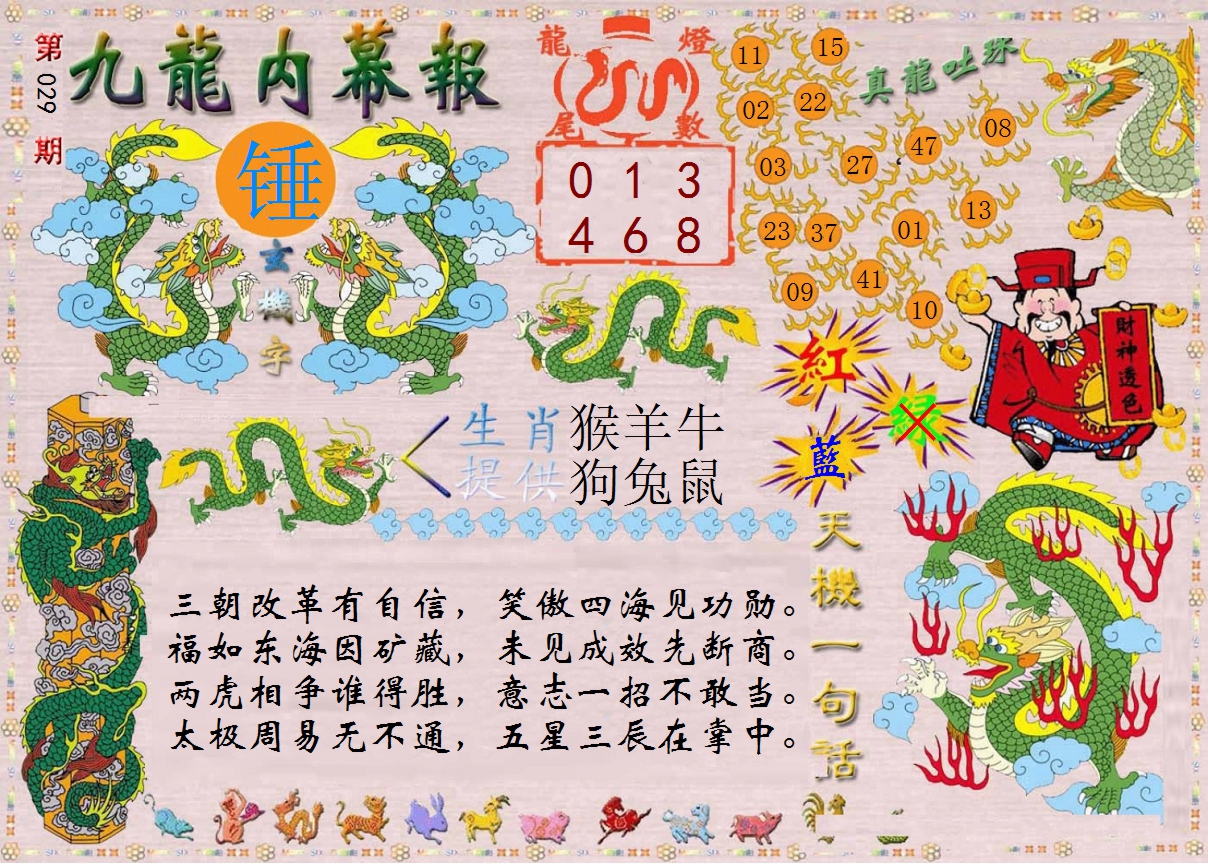 第029期
九龍内幕報
锤
玄機字
龍燈尾數
0 1 3
4 6 8
真龍吐珠
11 15
02 22
03 27 47 08
23 37 01 13
09 41 10
紅
緑
藍
財神透色
生肖提供
猴羊牛
狗兔鼠
天機一句话
三朝改革有自信，笑傲四海见功勋。
福如东海因矿藏，未见成效先断商。
两虎相争谁得胜，意志一招不敢当。
太极周易无不通，五星三辰在掌中。